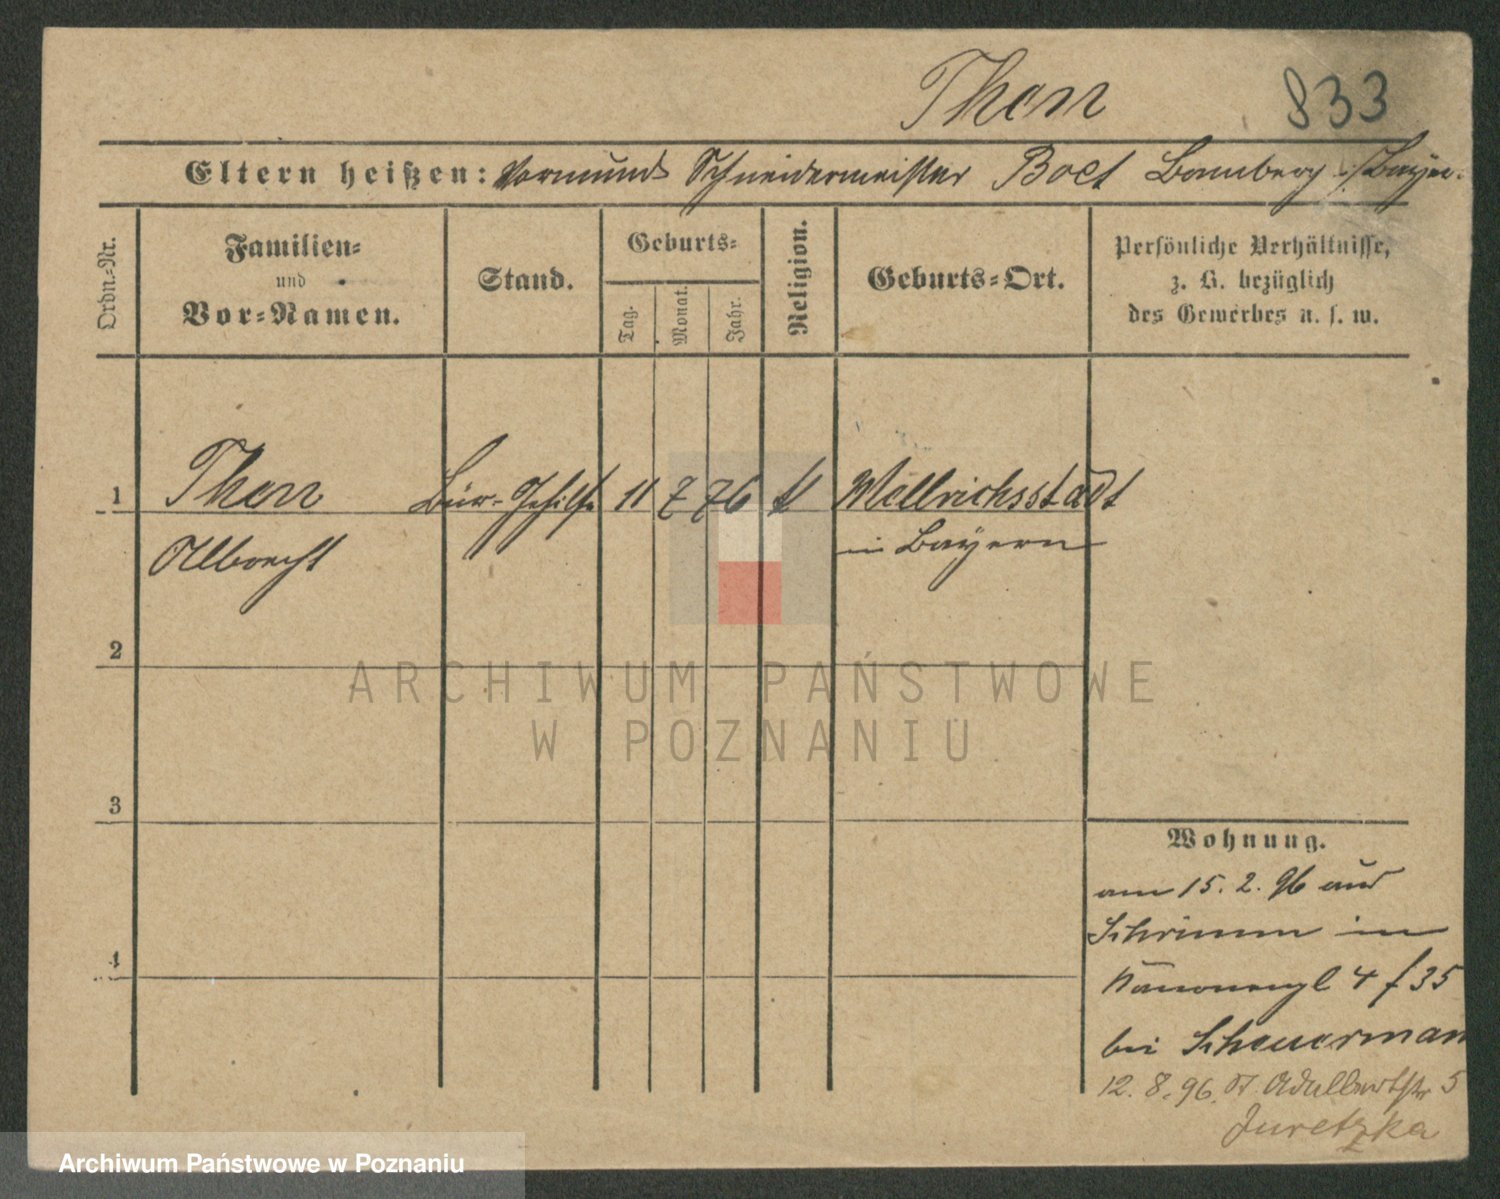 Then
833
Eltern heißen: Vormund Schneidermeister Bamberg i/Bayer.
Ordn.-Nr.
Familien-
und
Vor-Namen.
Stand.
Geburts-
Tag.
Monat.
Jahr.
Religion.
Geburts-Ort.
Persönliche Verhältnisse,
z. B. bezüglich
des Gewerbes u. s. w.
1
Then Bür-Gehilfe 11 7 76 Mellrichsstadt
Albrecht in Bayern
2
3
4
Wohnung.
am 15. 2. 96 aus
Schrimm in
Kanonenpl 4 f 35
bei Scheuermann
12. 8. 96. St. Adalbertstr 5
Juretzka
ARCHIWUM PAŃSTWOWE
W POZNANIU
Archiwum Państwowe w Poznaniu